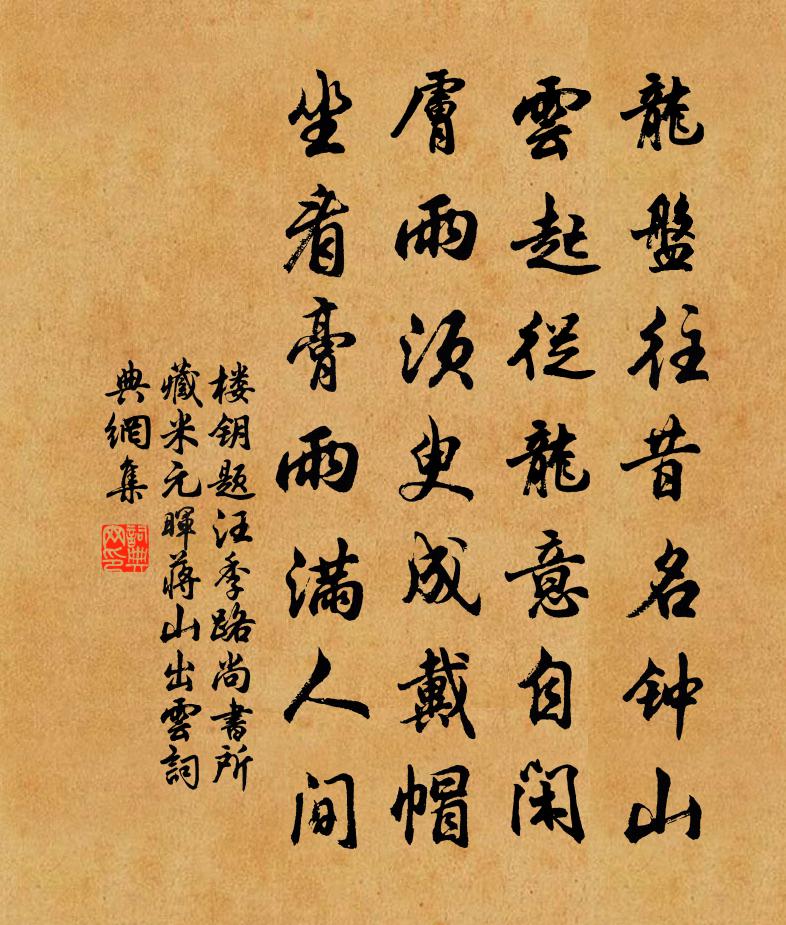 龍盤往昔名钟山
雲起從龍意自閑
膚雨須臾成戴帽
坐看膏雨满人间
楼钥题汪季路尚書所
藏米元暉蒋山出雲詞
典網集
詞典
网印